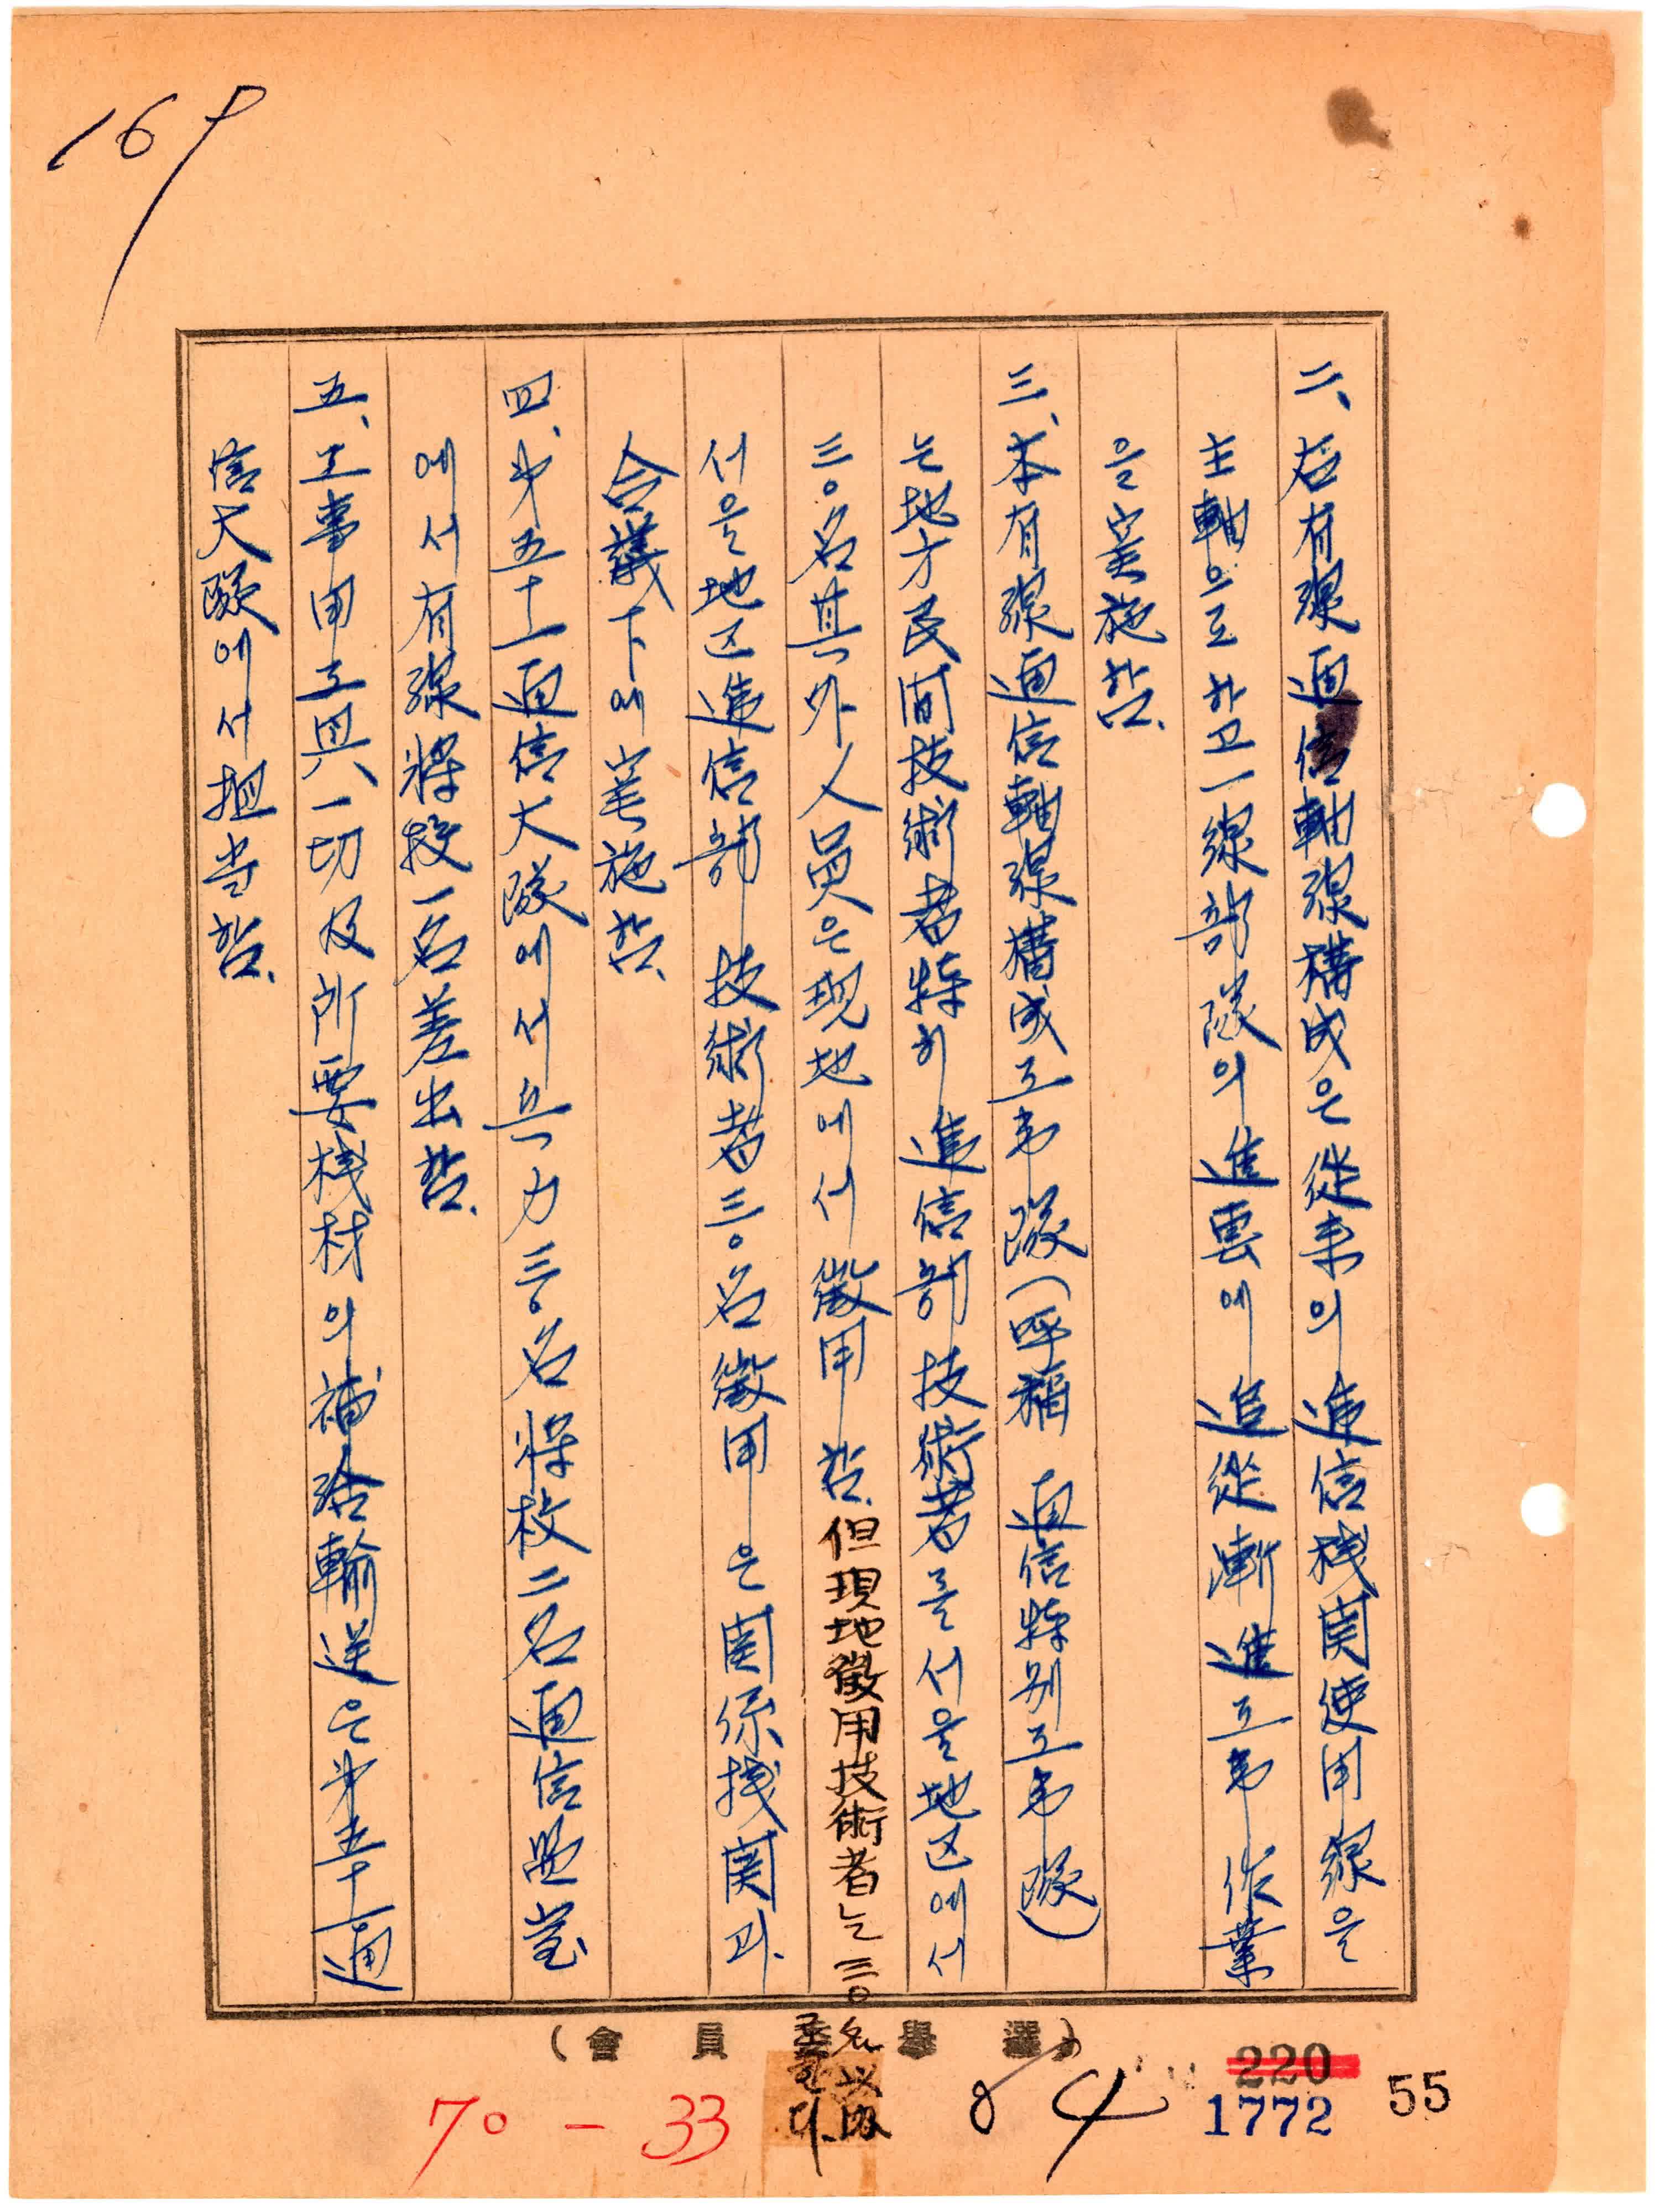 169
二、右有線通信軸線構成은 從来의 逓信機関使用線을
主軸으로하고 一線部隊의 進雲에 追從漸進工事作業
을 実施함.
三、本有線通信軸線構成工事隊(呼稱 通信特別工事隊)
는 地方民間技術者特히 逓信部技術者를 서울地区에서
三〇名其外人員은 現地에서 徵用함. 但現地徵用技術者는 三〇名以內
로 한다.
서울地区逓信部 技術者三〇名徵用은 関係機関과
合議下에 実施함.
四、第五十一通信大隊에서 兵力三〇名 将校二名通信監室
에서 有線将校一名差出함.
五、工事用工具、一切及所要機材의 補給輸送은 第五十一通
信大隊에서 担当함.
(選擧委員會)
70-33
84
220
1772
55